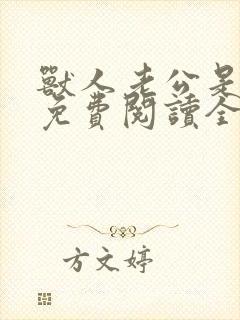 獸人老公是
免費閱讀全
方文婷